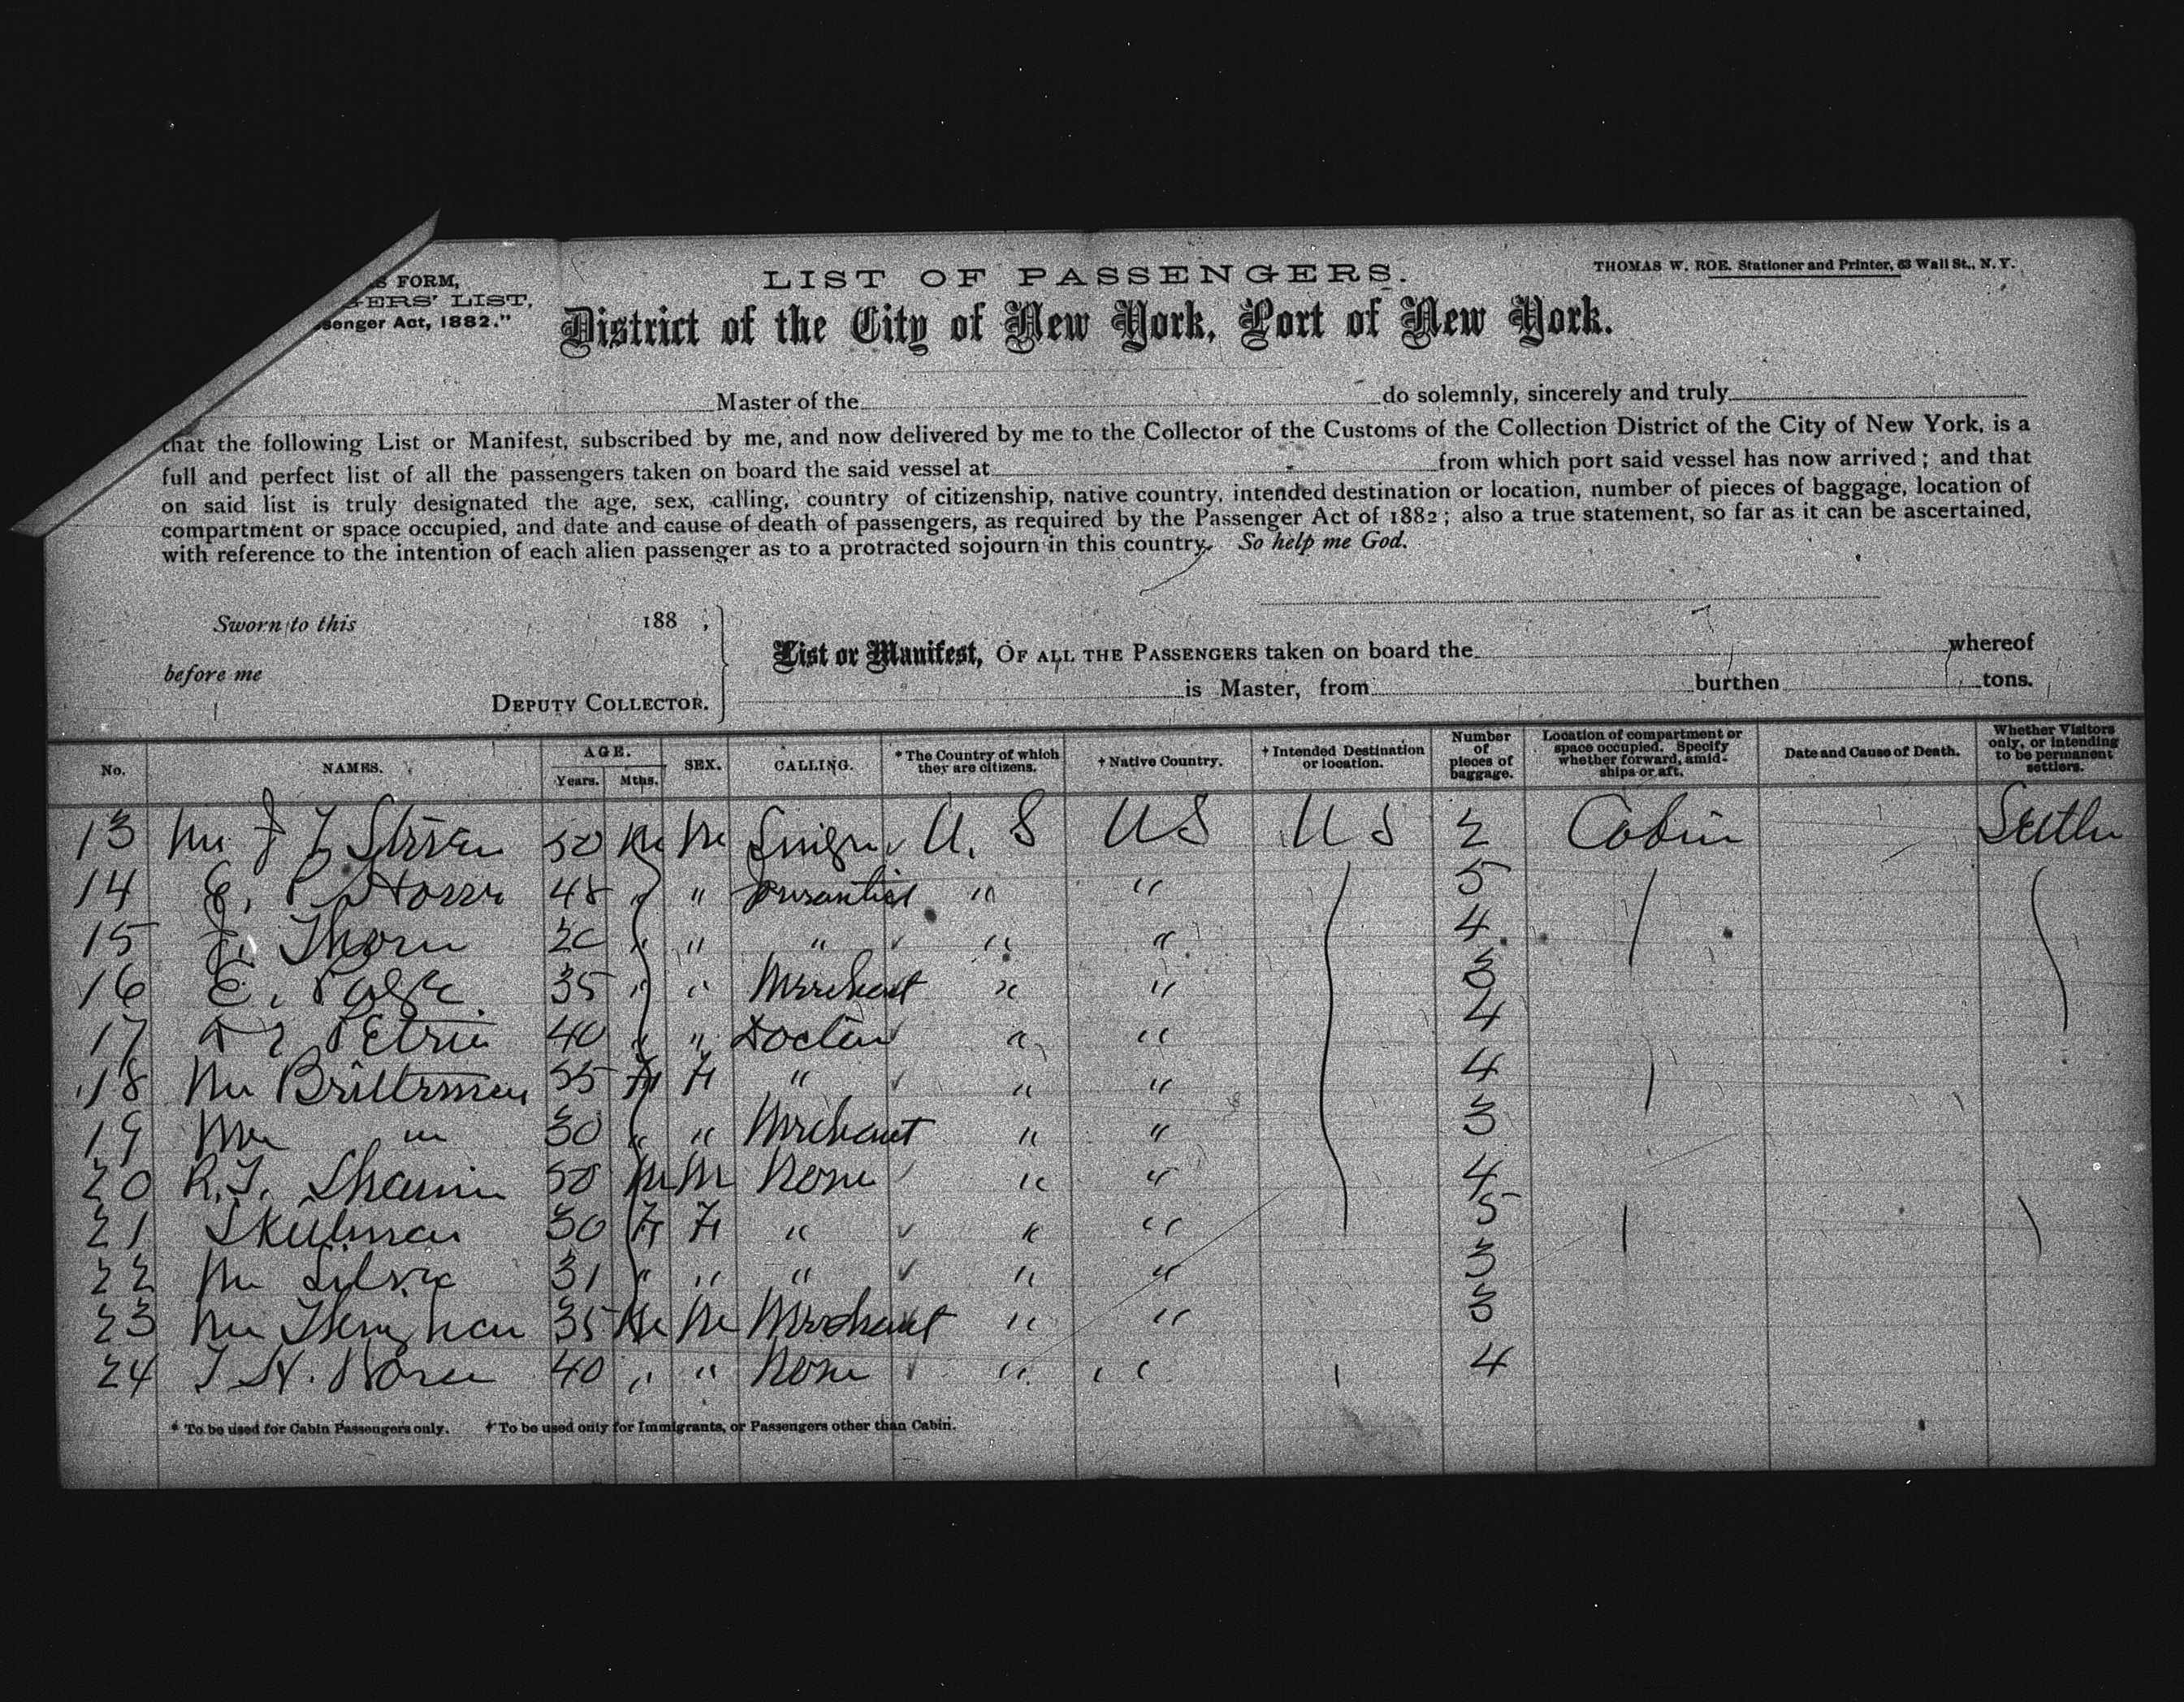 S FORM,
GERS' LIST,
senger Act, 1882."
LIST OF PASSENGERS.
THOMAS W. ROE, Stationer and Printer, 63 Wall St., N.Y.
District of the City of New York, Port of New York.
Master of the do solemnly, sincerely and truly
that the following List or Manifest, subscribed by me, and now delivered by me to the Collector of the Customs of the Collection District of the City of New York, is a
full and perfect list of all the passengers taken on board the said vessel at from which port said vessel has now arrived; and that
on said list is truly designated the age, sex, calling, country of citizenship, native country, intended destination or location, number of pieces of baggage, location of
compartment or space occupied, and date and cause of death of passengers, as required by the Passenger Act of 1882; also a true statement, so far as it can be ascertained,
with reference to the intention of each alien passenger as to a protracted sojourn in this country. So help me God.
Sworn to this 188 ;
before me
DEPUTY COLLECTOR.
List or Manifest, OF ALL THE PASSENGERS taken on board the whereof
is Master, from burthen tons.
No. NAMES. AGE. Years. Mths. SEX. CALLING. * The Country of which they are citizens. † Native Country. † Intended Destination or location. Number of pieces of baggage. Location of compartment or space occupied. Specify whether forward, amidships or aft. Date and Cause of Death. Whether Visitors only, or intending to be permanent settlers.
13 J 50 M M U. S US US 2 Cabin
14 E. P. 48 " " " " 5
15 J. Thorn 20 " " " " " 4
16 E. 35 " " Merchant " " 3
17 Petrie 40 " " Doctor " " 4
18 55 F F " " " 4
19 " 30 " " Merchant " " 3
20 R. T. 50 M M None " " 4
21 Skillman 30 F F " " " 5
22 31 " " " " " 3
23 35 M M Merchant " " 3
24 40 " " None " " 4
* To be used for Cabin Passengers only. † To be used only for Immigrants, or Passengers other than Cabin.